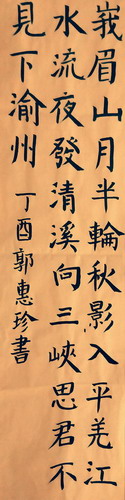 峩眉山月半輪秋影入平羌江
水流夜發清溪向三峽思君不
見下渝州
丁酉郭惠珍書